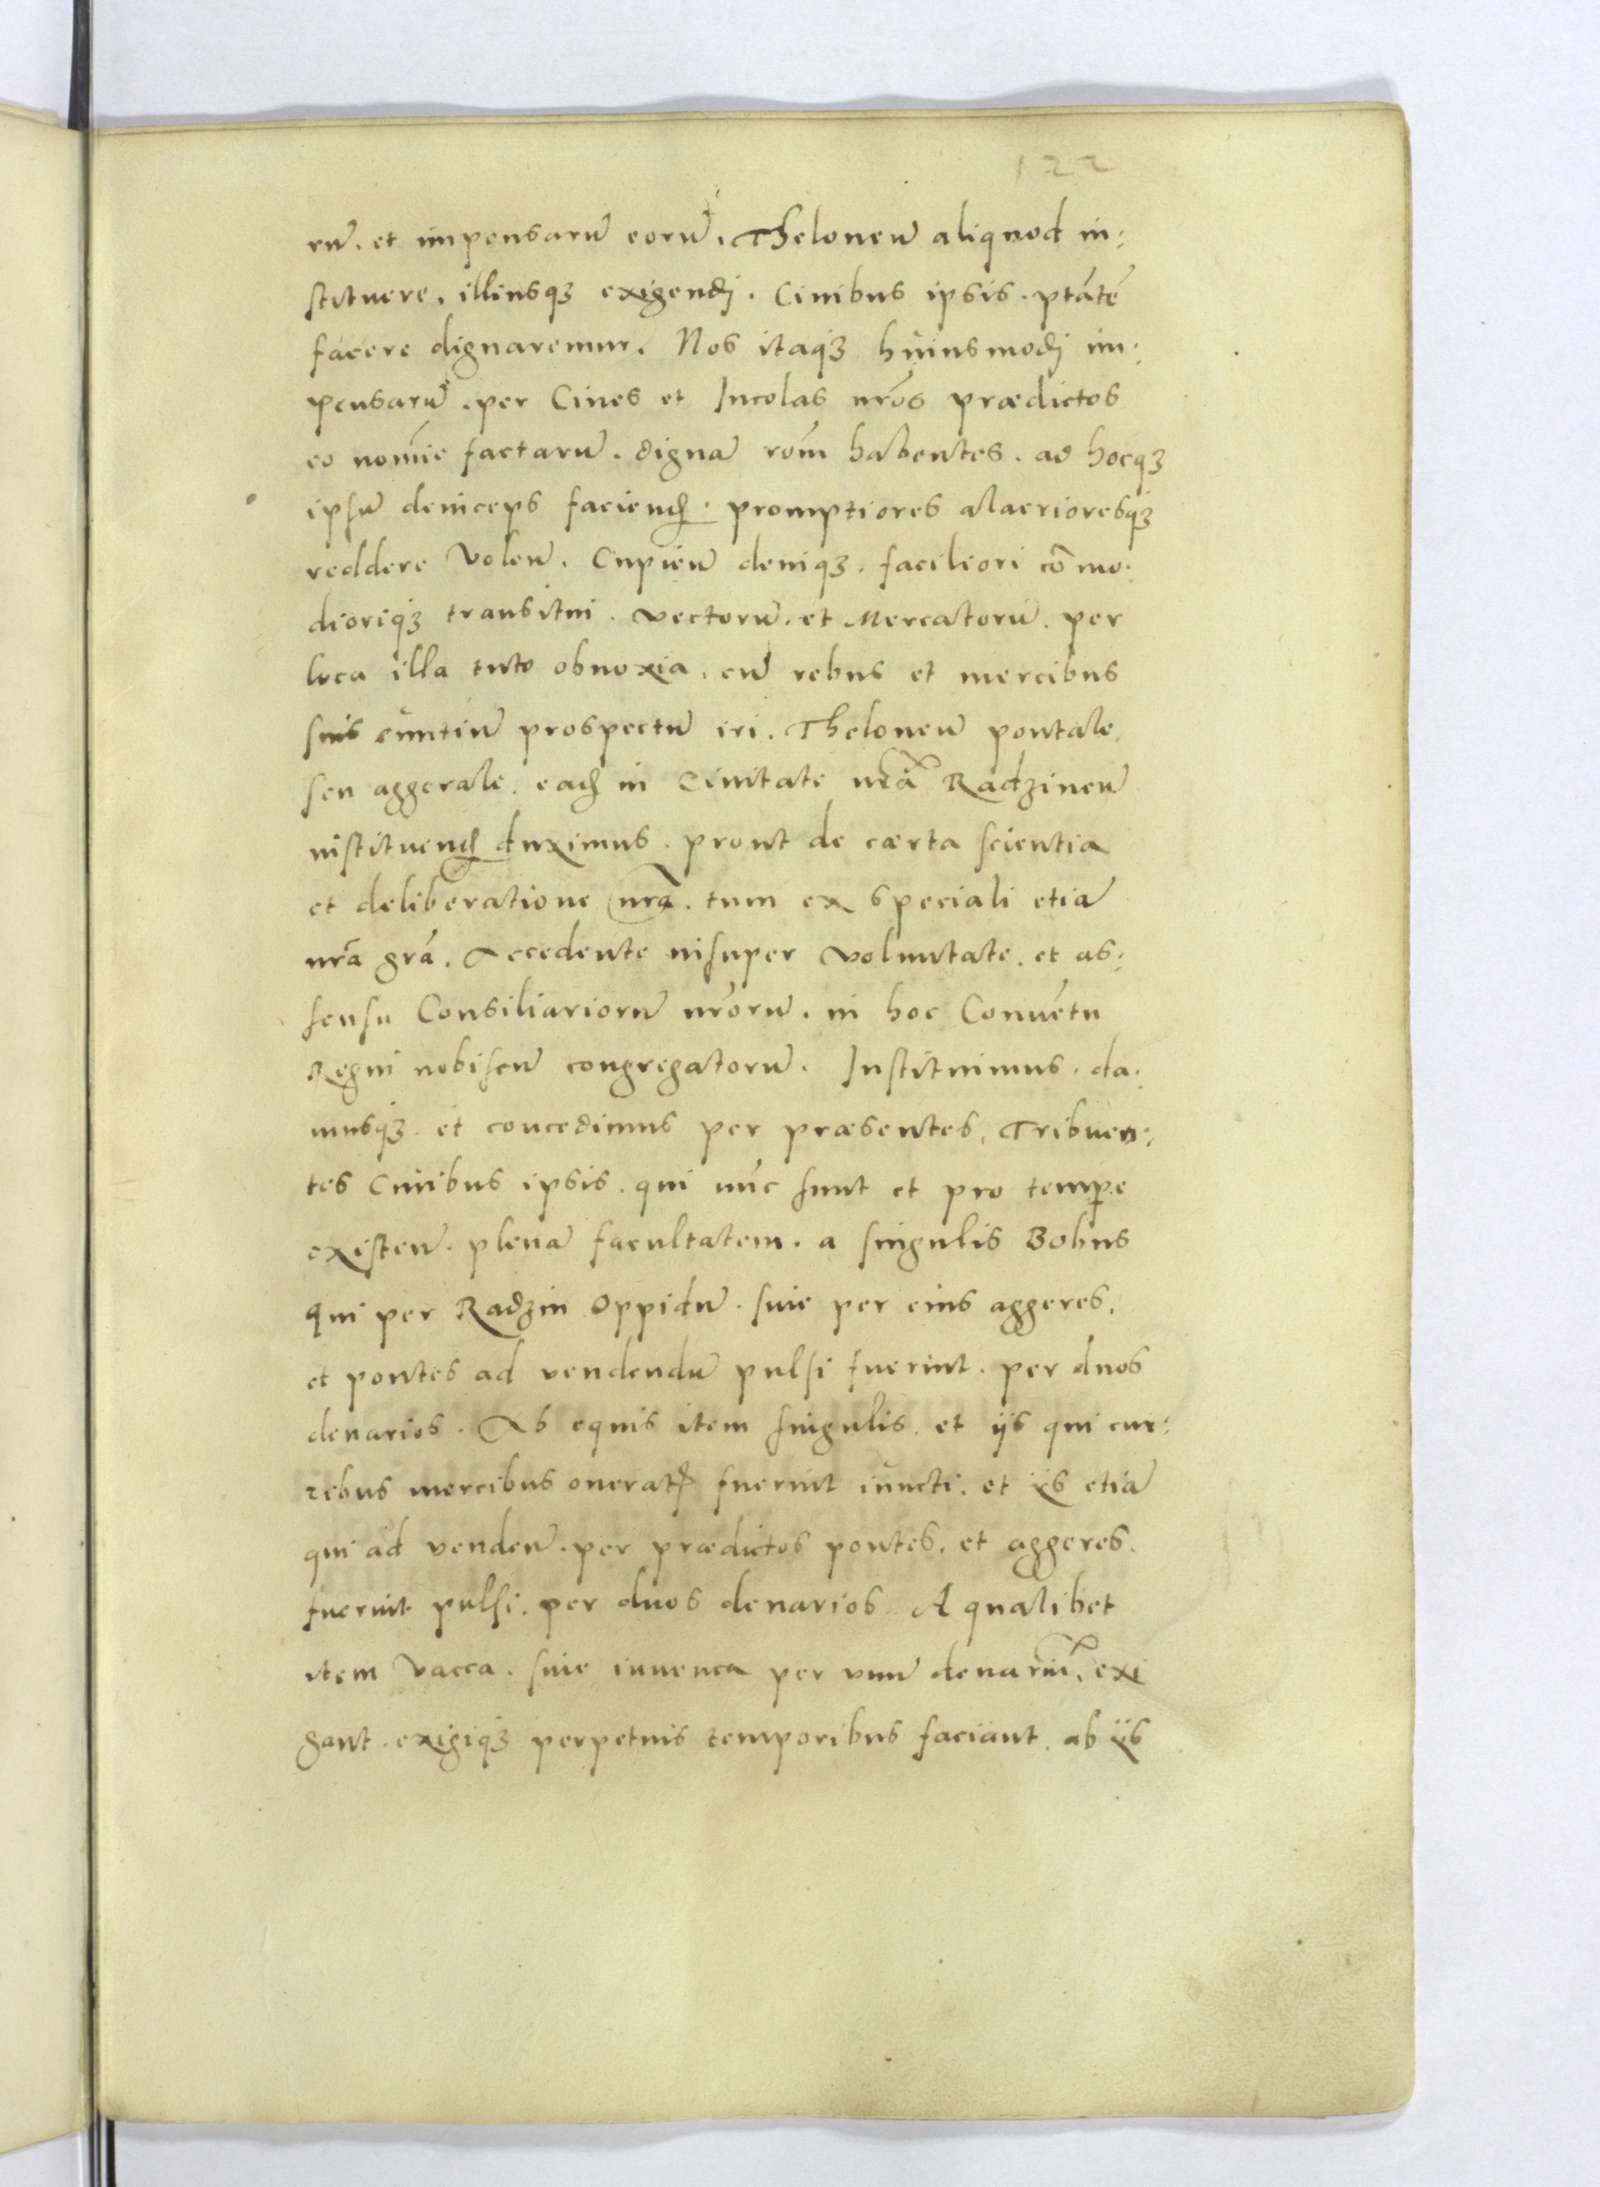 122
rū. et impensarū eorū. Theloneū aliquod in:
stituere. illiusqȝ exigendj. Ciuibus ipsis. ptātē
facere dignaremur. Nos itaqȝ huiusmodj im:
pensarū. per Ciues et Incolas nr̃os prædictos
eo nom̃ie factarū. dignā rōm habentes. ad hocqȝ
ipsū deinceps faciend̄. promptiores alacrioresqȝ
reddere volen̄. Cupien̄ deniqȝ. faciliori cōmo:
dioriqȝ transitui. vectorū. et Mercatorū. per
loca illa luto obnoxia. cū rebus et mercibus
suis euntiū prospectū iri. Theloneū pontale.
seu aggerale. ead̄ in Ciuitate nr̃a Radzinen̄
instituend̄ duximus. prout de cærta scientia
et deliberatione nr̃a. tum ex speciali etiā
nr̃a gr̃a. Accedente insuper voluntate. et as:
sensu Consiliariorū nr̃orū. in hoc Conuētu
Regni nobiscū congregatorū. Instituimus. da:
musqȝ. et concedimus per præsentes. Tribuen:
tes Ciuibus ipsis. qui nūc sunt et pro temp̱e
existen̄. plenā facultatem. a singulis Bobus
qui per Radzin Oppidū. siue per eius aggeres.
et pontes ad vendendū pulsi fuerint. per duos
denarios. Ab equis item singulis. et ijs qui cur:
rebus mercibus onerat̄ fuerint iuncti. et ijs etiā
qui ad venden̄. per prædictos pontes. et aggeres.
fuerint pulsi. per duos denarios A qualibet
item vacca. siue iuuenca per vnū denariū. exi
gant. exigiqȝ perpetuis temporibus faciant. ab ijs